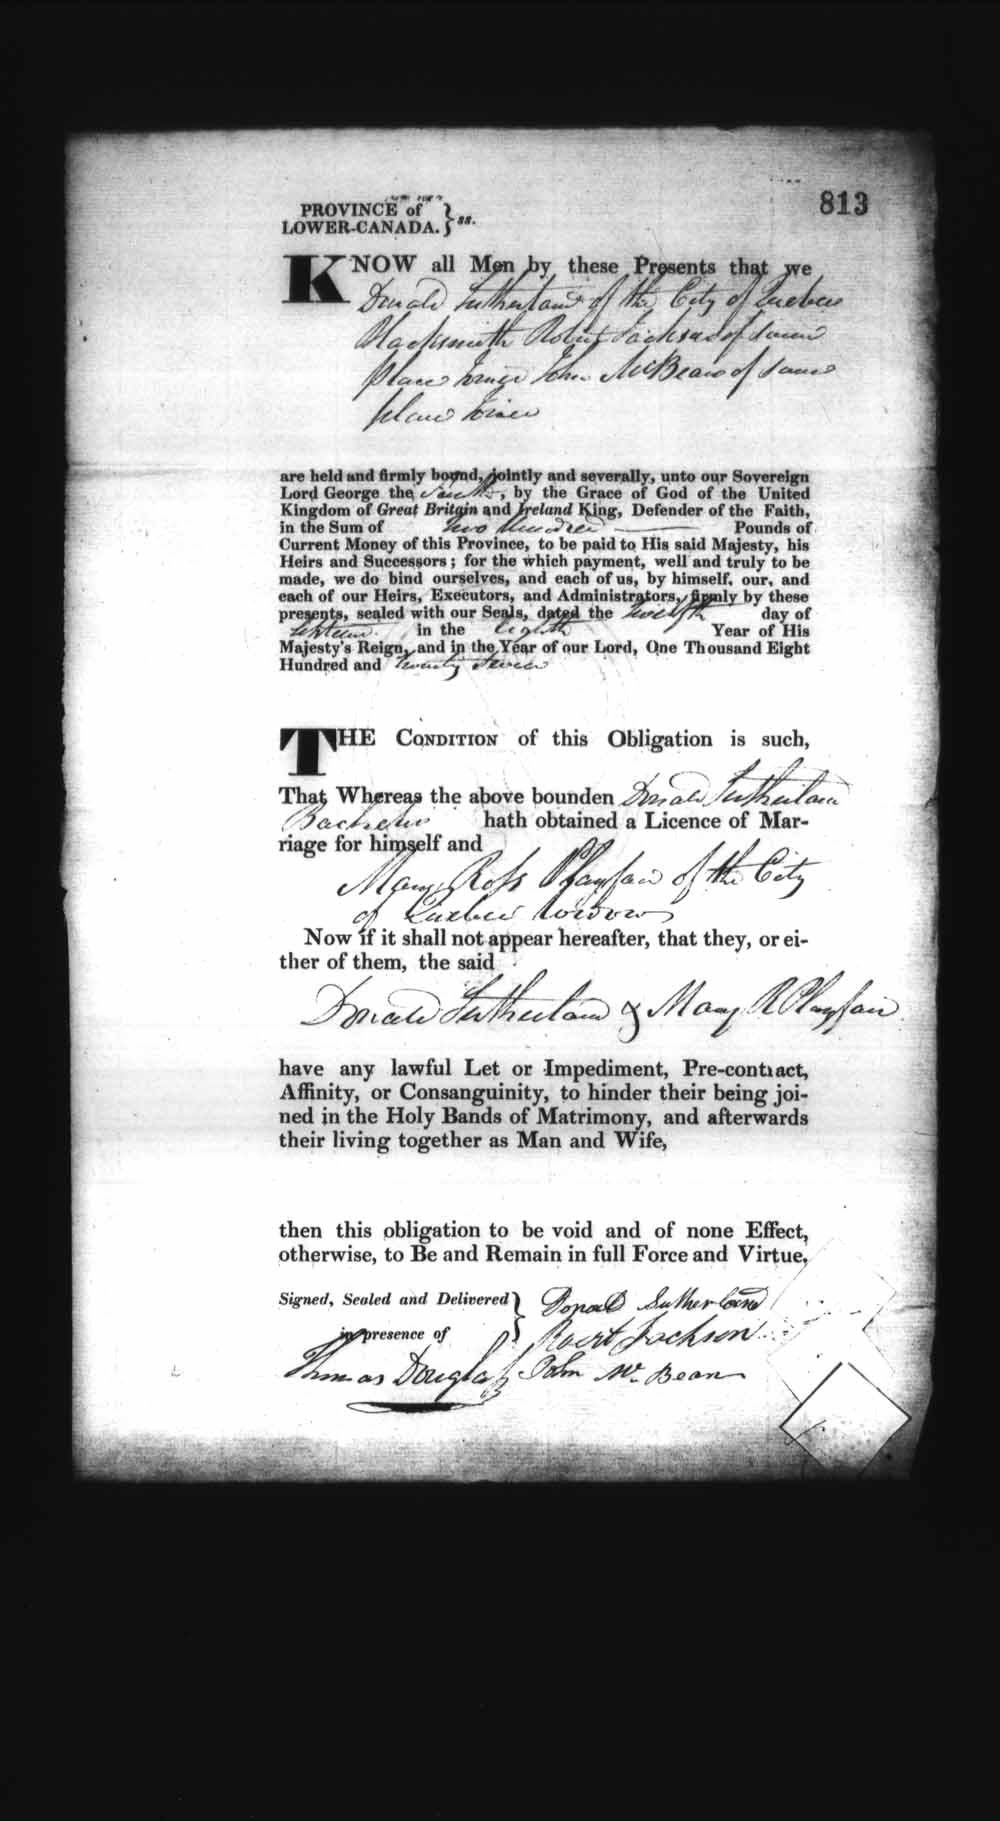 813
PROVINCE of
LOWER-CANADA. } ss.
KNOW all Men by these Presents that we
Donald Sutherland of the City of Quebec
Blacksmith Robert Jackson of same
place John McBean of same
place
are held and firmly bound, jointly and severally, unto our Sovereign
Lord George the fourth, by the Grace of God of the United
Kingdom of Great Britain and Ireland King, Defender of the Faith,
in the Sum of two hundred Pounds of
Current Money of this Province, to be paid to His said Majesty, his
Heirs and Successors; for the which payment, well and truly to be
made, we do bind ourselves, and each of us, by himself, our, and
each of our Heirs, Executors, and Administrators, firmly by these
presents, sealed with our Seals, dated the twelfth day of
in the eighth Year of His
Majesty's Reign, and in the Year of our Lord, One Thousand Eight
Hundred and twenty seven
THE CONDITION of this Obligation is such,
That Whereas the above bounden Donald Sutherland
Bachelor hath obtained a Licence of Mar-
riage for himself and
Mary Ross Playfair of the City
of Quebec widow
Now if it shall not appear hereafter, that they, or ei-
ther of them, the said
Donald Sutherland & Mary R Playfair
have any lawful Let or Impediment, Pre-contract,
Affinity, or Consanguinity, to hinder their being joi-
ned in the Holy Bands of Matrimony, and afterwards
their living together as Man and Wife,
then this obligation to be void and of none Effect,
otherwise, to Be and Remain in full Force and Virtue.
Signed, Sealed and Delivered } Donald Sutherland
in presence of Robert Jackson
Thomas Douglass John Mc Bean